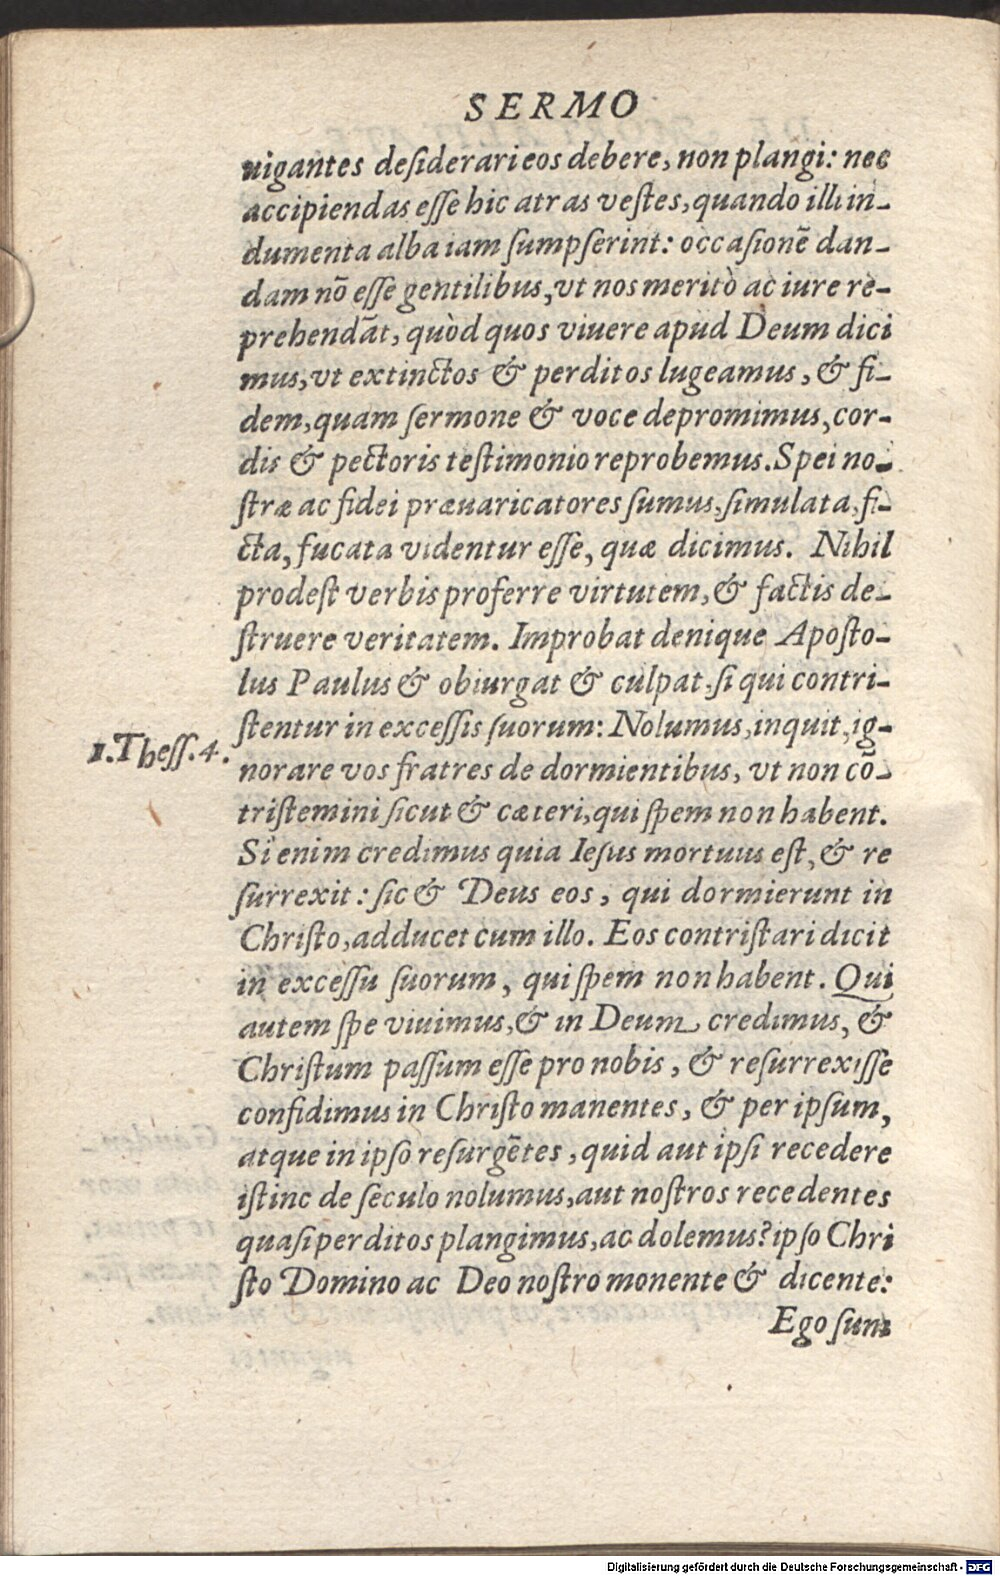 SERMO
uigantes desiderari eos debere, non plangi: nec
accipiendas esse hic atras vestes, quando illi in-
dumenta alba iam sumpserint: occasionē dan-
dam nō esse gentilibus, vt nos meritò ac iure re-
prehendāt, quòd quos viuere apud Deum dici
mus, vt extinctos & perditos lugeamus, & fi-
dem, quam sermone & voce depromimus, cor-
dis & pectoris testimonio reprobemus. Spei no-
stræ ac fidei præuaricatores sumus, simulata, fi-
cta, fucata videntur esse, quæ dicimus. Nihil
prodest verbis proferre virtutem, & factis de-
struere veritatem. Improbat denique Aposto-
lus Paulus & obiurgat & culpat, si qui contri-
stentur in excessis suorum: Nolumus, inquit, ig-
1. Thess. 4.
norare vos fratres de dormientibus, vt non cō-
tristemini sicut & cæteri, qui spem non habent.
Si enim credimus quia Iesus mortuus est, & re
surrexit: sic & Deus eos, qui dormierunt in
Christo, adducet cum illo. Eos contristari dicit
in excessu suorum, qui spem non habent. Qui
autem spe viuimus, & in Deum credimus, &
Christum passum esse pro nobis, & resurrexisse
confidimus in Christo manentes, & per ipsum,
atque in ipso resurgētes, quid aut ipsi recedere
istinc de seculo nolumus, aut nostros recedentes
quasi perditos plangimus, ac dolemus? ipso Chri
sto Domino ac Deo nostro monente & dicente:
Ego sum
Digitalisierung gefördert durch die Deutsche Forschungsgemeinschaft - DFG